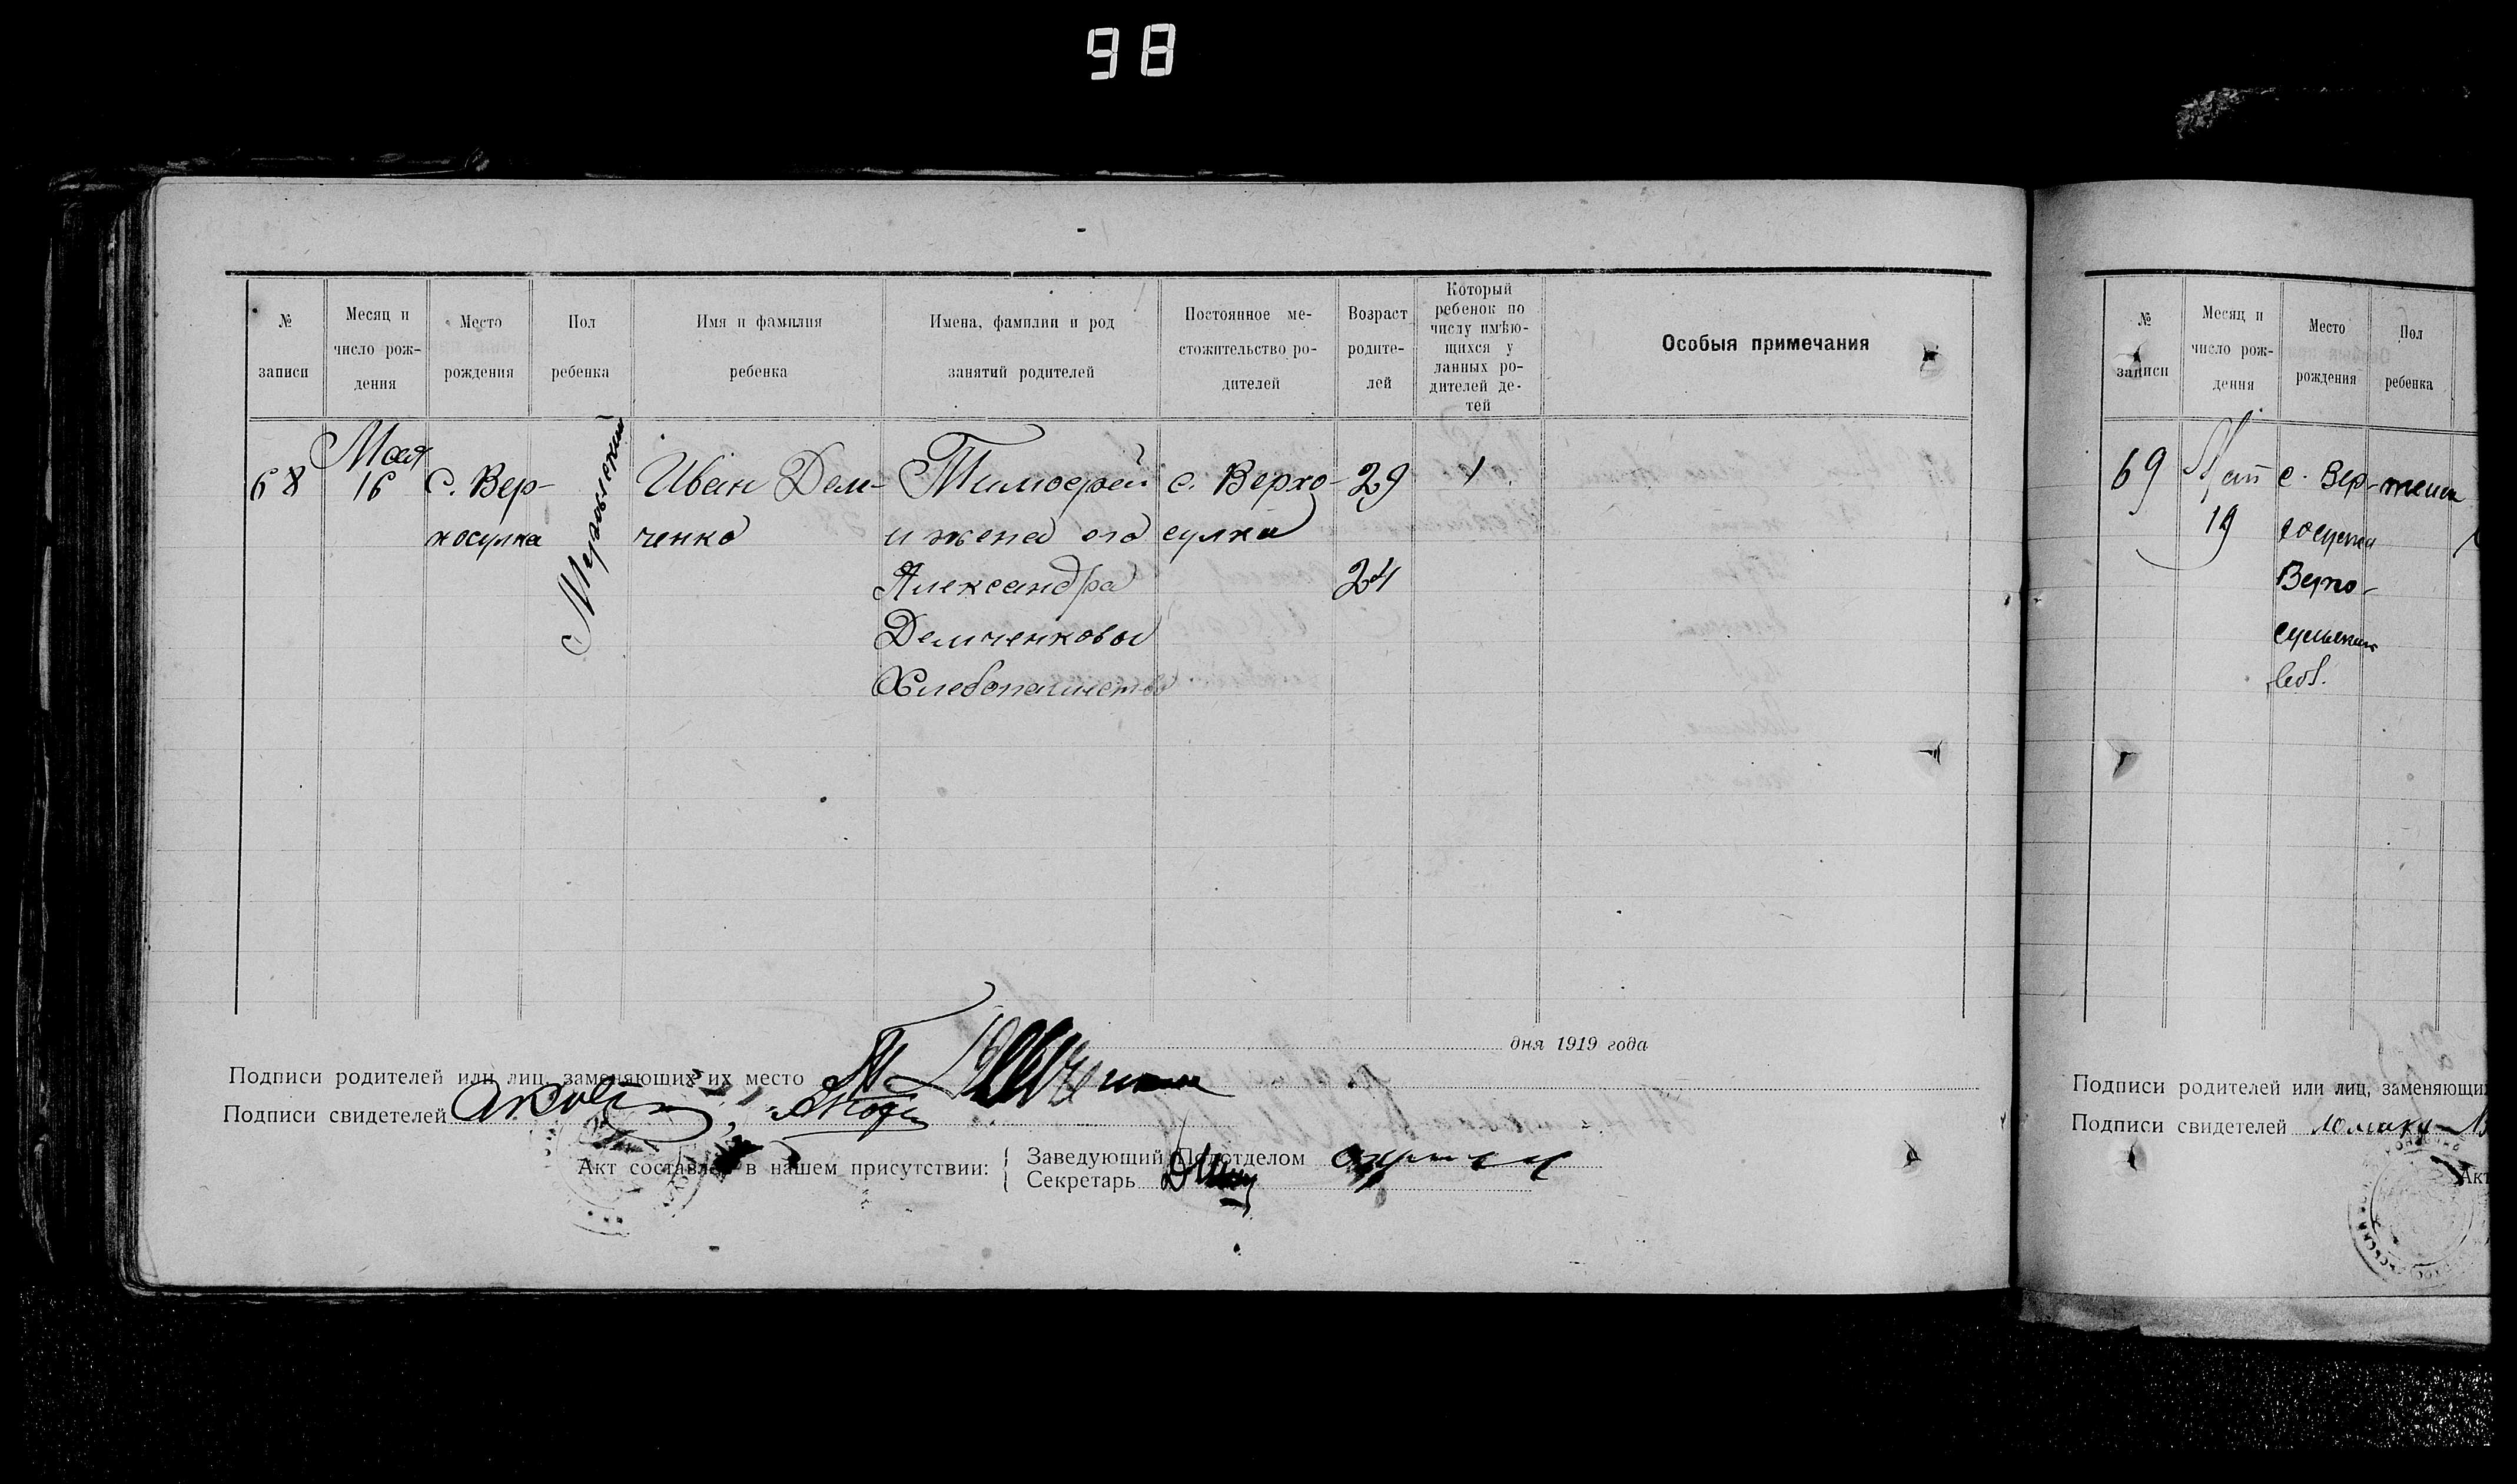 98
№ записи
Месяц и число рождения
Место рождения
Пол ребенка
Имя и фамилия ребенка
Имена, фамилии и род занятий родителей
Постоянное местожительство родителей
Возраст родителей
Который ребенок по числу имѣющихся у данных родителей детей
Особыя примечания
68
Мая
16
с. Вер-
хосулка
Иван Дем-
ченко
Тимофей
и жена его
Александра
Демченковы
Хлебопашество
с. Верхо-
сулка
29
24
1
дня 1919 года
Подписи родителей или лиц, заменяющих их место
Подписи свидетелей
Акт составлен в нашем присутствии:
Заведующий Подотделом
Секретарь
№ записи
Месяц и число рождения
Место рождения
Пол ребенка
69
19
с. Вер-
Верхо-
Подписи родителей или лиц, заменяющи
Подписи свидетелей
Акт